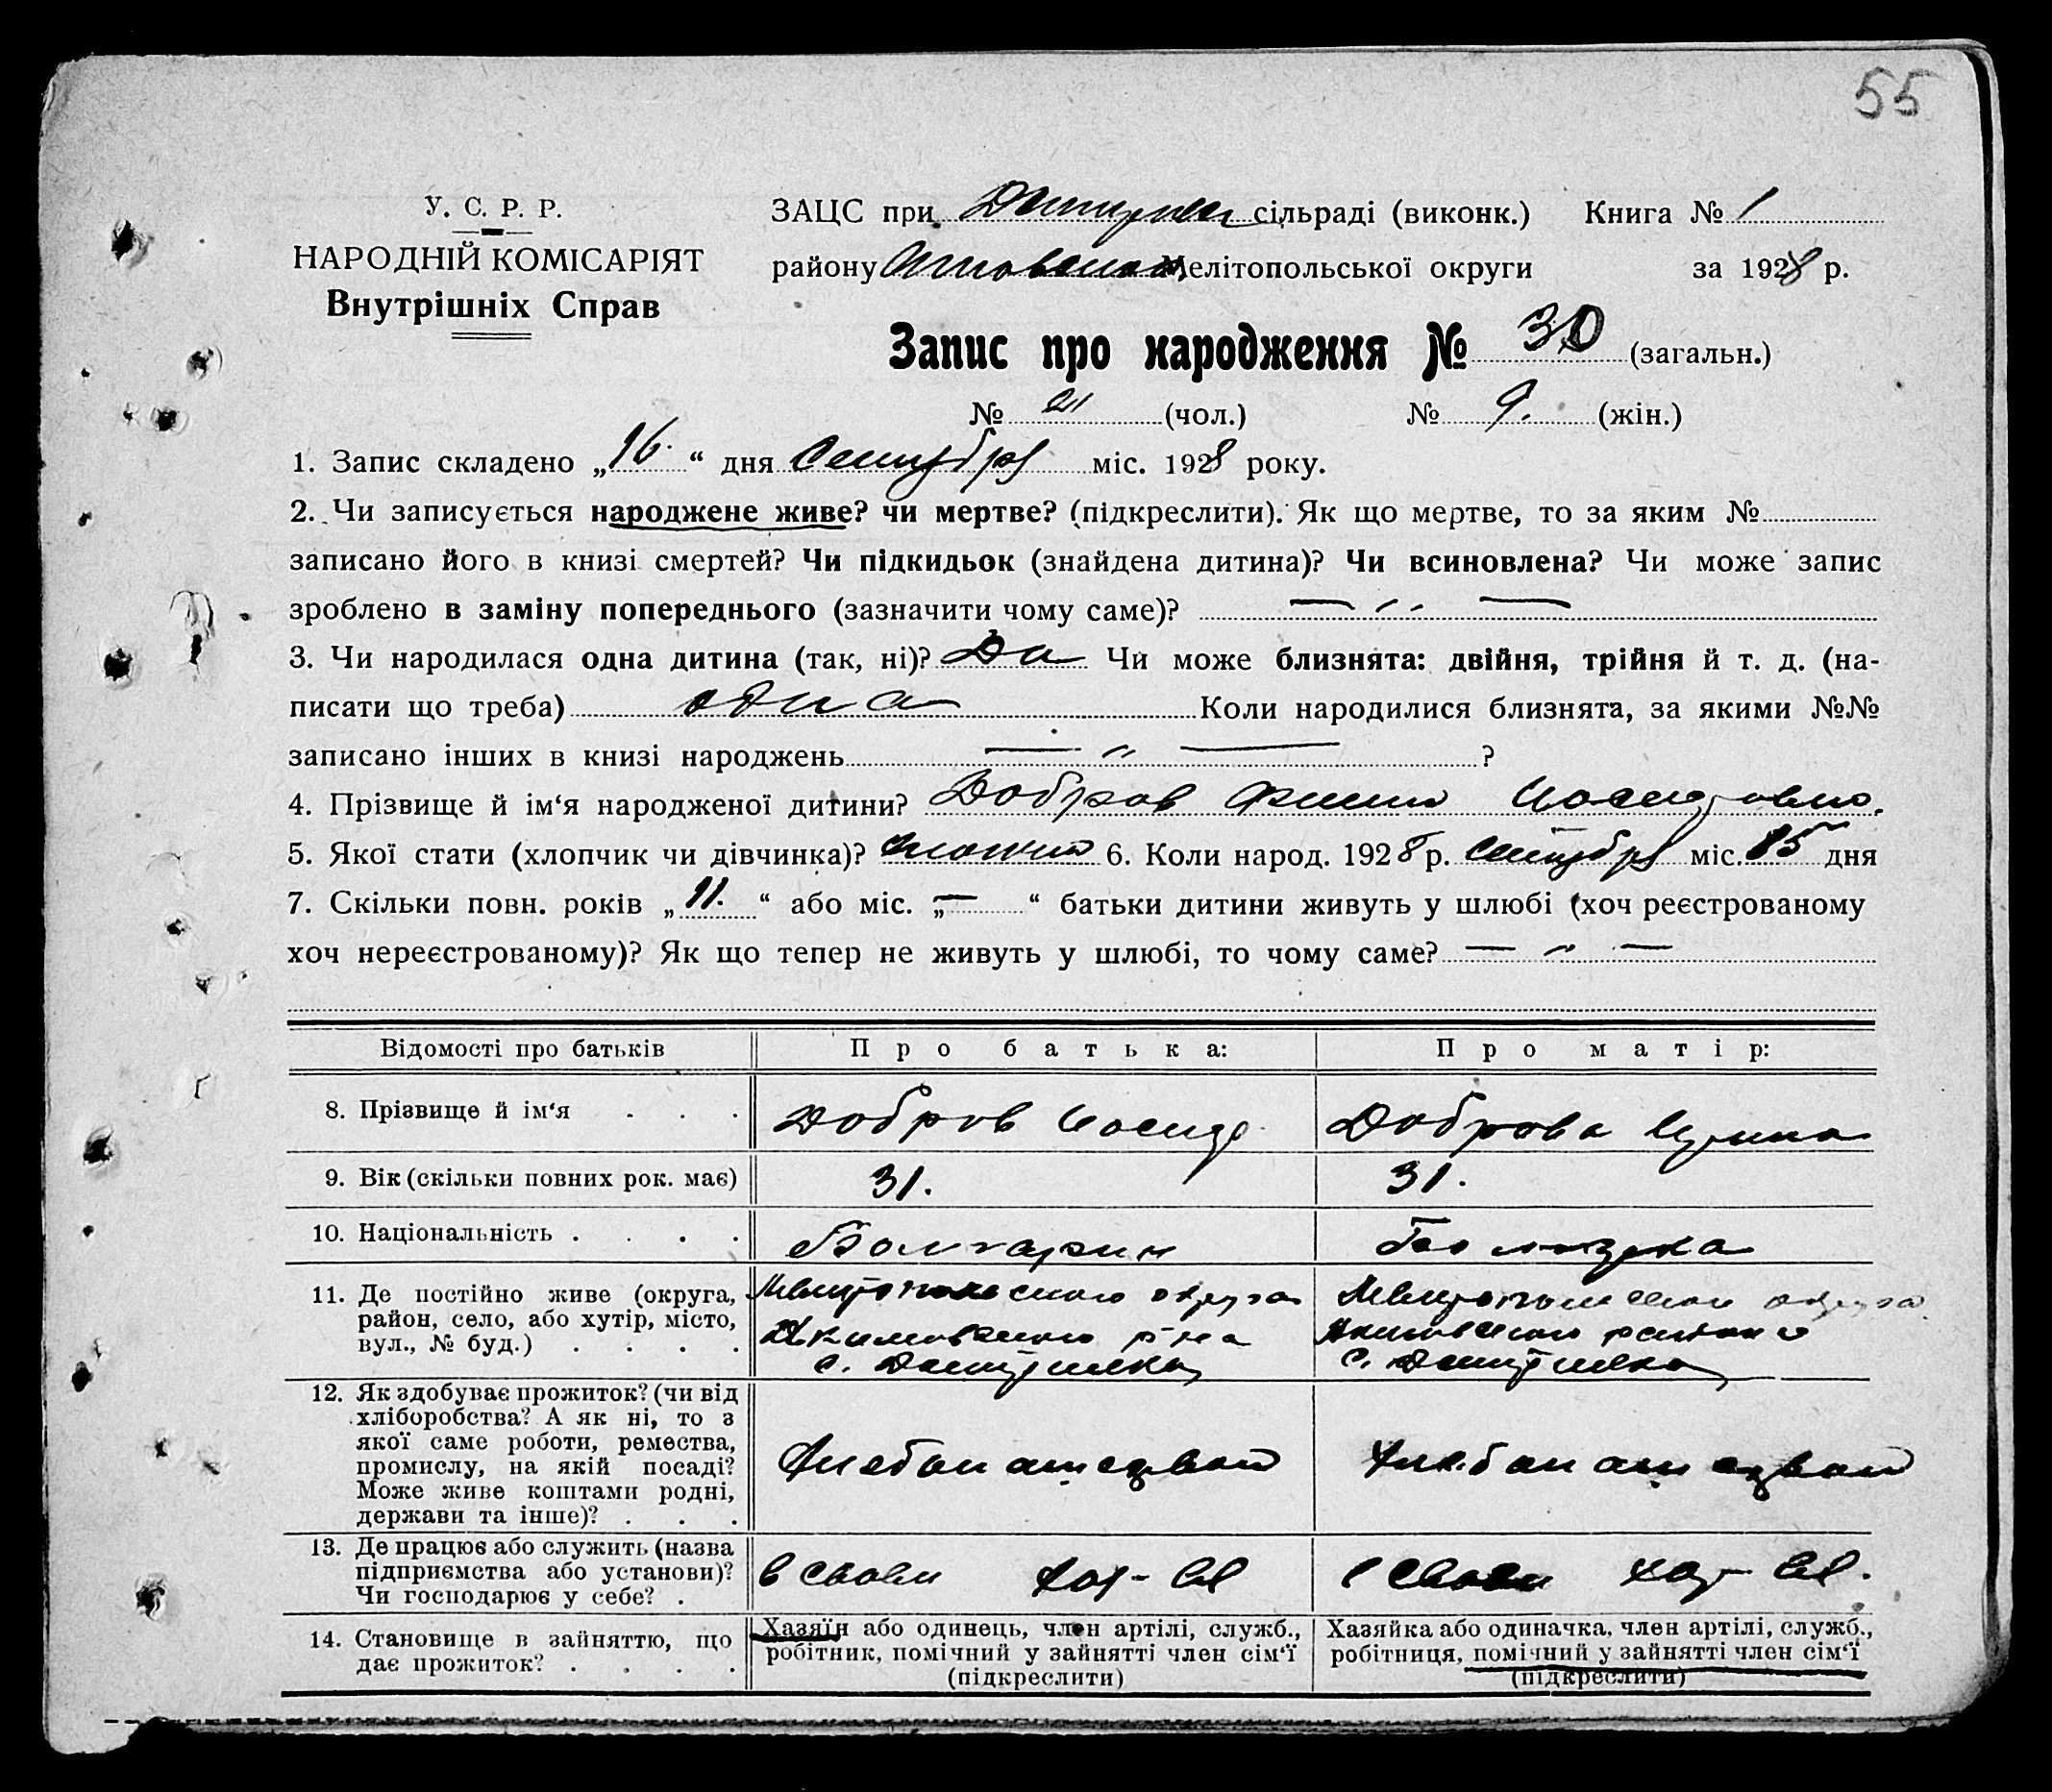 55
У. С. Р. Р.
НАРОДНІЙ КОМІСАРІЯТ
Внутрішніх Справ
ЗАЦС при сільраді (виконк.) Книга № 1
району Мелітопольської округи за 1928 р.
Запис про народження № 30 (загальн.)
№ 21 (чол.) № 9. (жін.)
1. Запис складено „16.“ дня Сентября міс. 1928 року.
2. Чи записується народжене живе? чи мертве? (підкреслити). Як що мертве, то за яким №
записано його в книзі смертей? Чи підкидьок (знайдена дитина)? Чи всиновлена? Чи може запис
зроблено в заміну попереднього (зазначити чому саме)? — „ —
3. Чи народилася одна дитина (так, ні)? Да Чи може близнята: двійня, трійня й т. д. (на-
писати що треба) одна Коли народилися близнята, за якими №№
записано інших в книзі народжень — „ — ?
4. Прізвище й ім‘я народженої дитини? Добров
5. Якої статі (хлопчик чи дівчинка)? 6. Коли народ. 1928 р. Сентября міс. 15 дня
7. Скільки повн. років „11.“ або міс. „—“ батьки дитини живуть у шлюбі (хоч реєстрованому
хоч нереєстрованому)? Як що тепер не живуть у шлюбі, то чому саме? — „ —
Відомості про батьків Про батька: Про матір:
8. Прізвище й ім‘я . . . Добров Иосиф Доброва Ирина
9. Вік (скільки повних рок. має) 31. 31.
10. Національність . . . . Болгарин Болгарка
11. Де постійно живе (округа, Мелитопольского округа Мелитопольского округа
район, село, або хутір, місто, Акимовского р-на Акимовского района
вул., № буд.) . . . . с. с.
12. Як здобуває прожиток? (чи від
хліборобства? А як ні, то з
якої саме роботи, ремества,
промислу, на якій посаді? Хлебопашеством Хлебопашеством
Може живе коштами родні,
держави та інше)? . . .
13. Де працює або служить (назва
підприємства або установи)? в своем хоз-ве в своем хоз-ве.
Чи господарює у себе? .
14. Становище в зайняттю, що Хазяїн або одинець, член артілі, служб., Хазяйка або одиначка, член артілі, служб.,
дає прожиток? . . . . робітник, помічний у зайнятті член сім‘ї робітниця, помічний у зайнятті член сім‘ї
(підкреслити) (підкреслити)